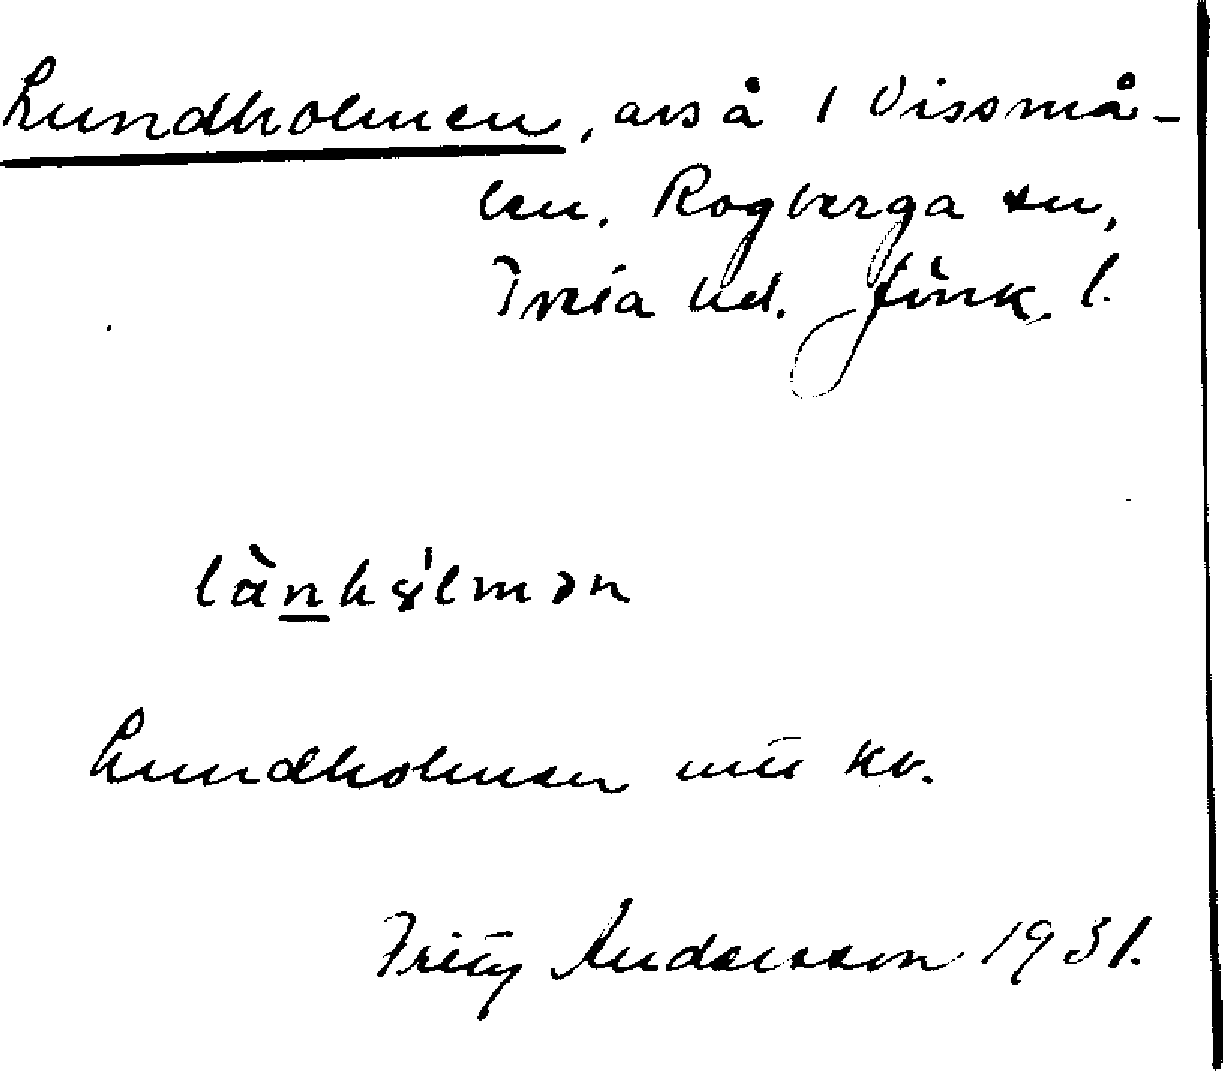 Lundholmen, avs å i Vissmå-
len. Rogberga sn,
Tveta hd. Jönk. l.
Lundholmen utt kv.
Fritz Andersson 1931.